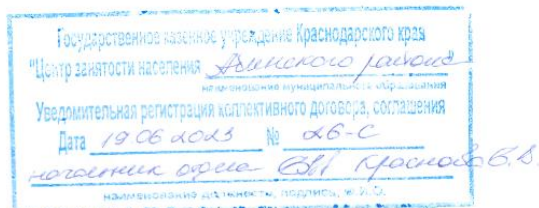 Государственное казенное учреждение Краснодарского края
"Центр занятости населения Абинского района"
наименование муниципального образования
Уведомительная регистрация коллективного договора, соглашения
Дата 19 06 2023 № 26-С
начальник отдела Краснова
наименование должности, подпись, Ф.И.О.